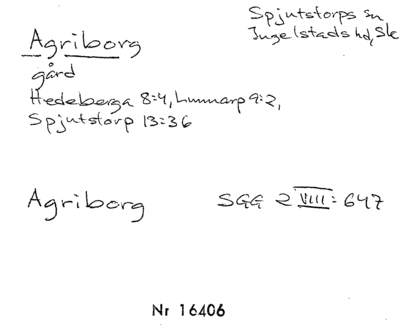 Agriborg
Spjutstorps sn
Ingelstads hd, Sk
gård
Hedeberga 8:4, Lunnarp 9:2,
Spjutstorp 13:36
Agriborg SGG 2 VIII: 647
Nr 16406